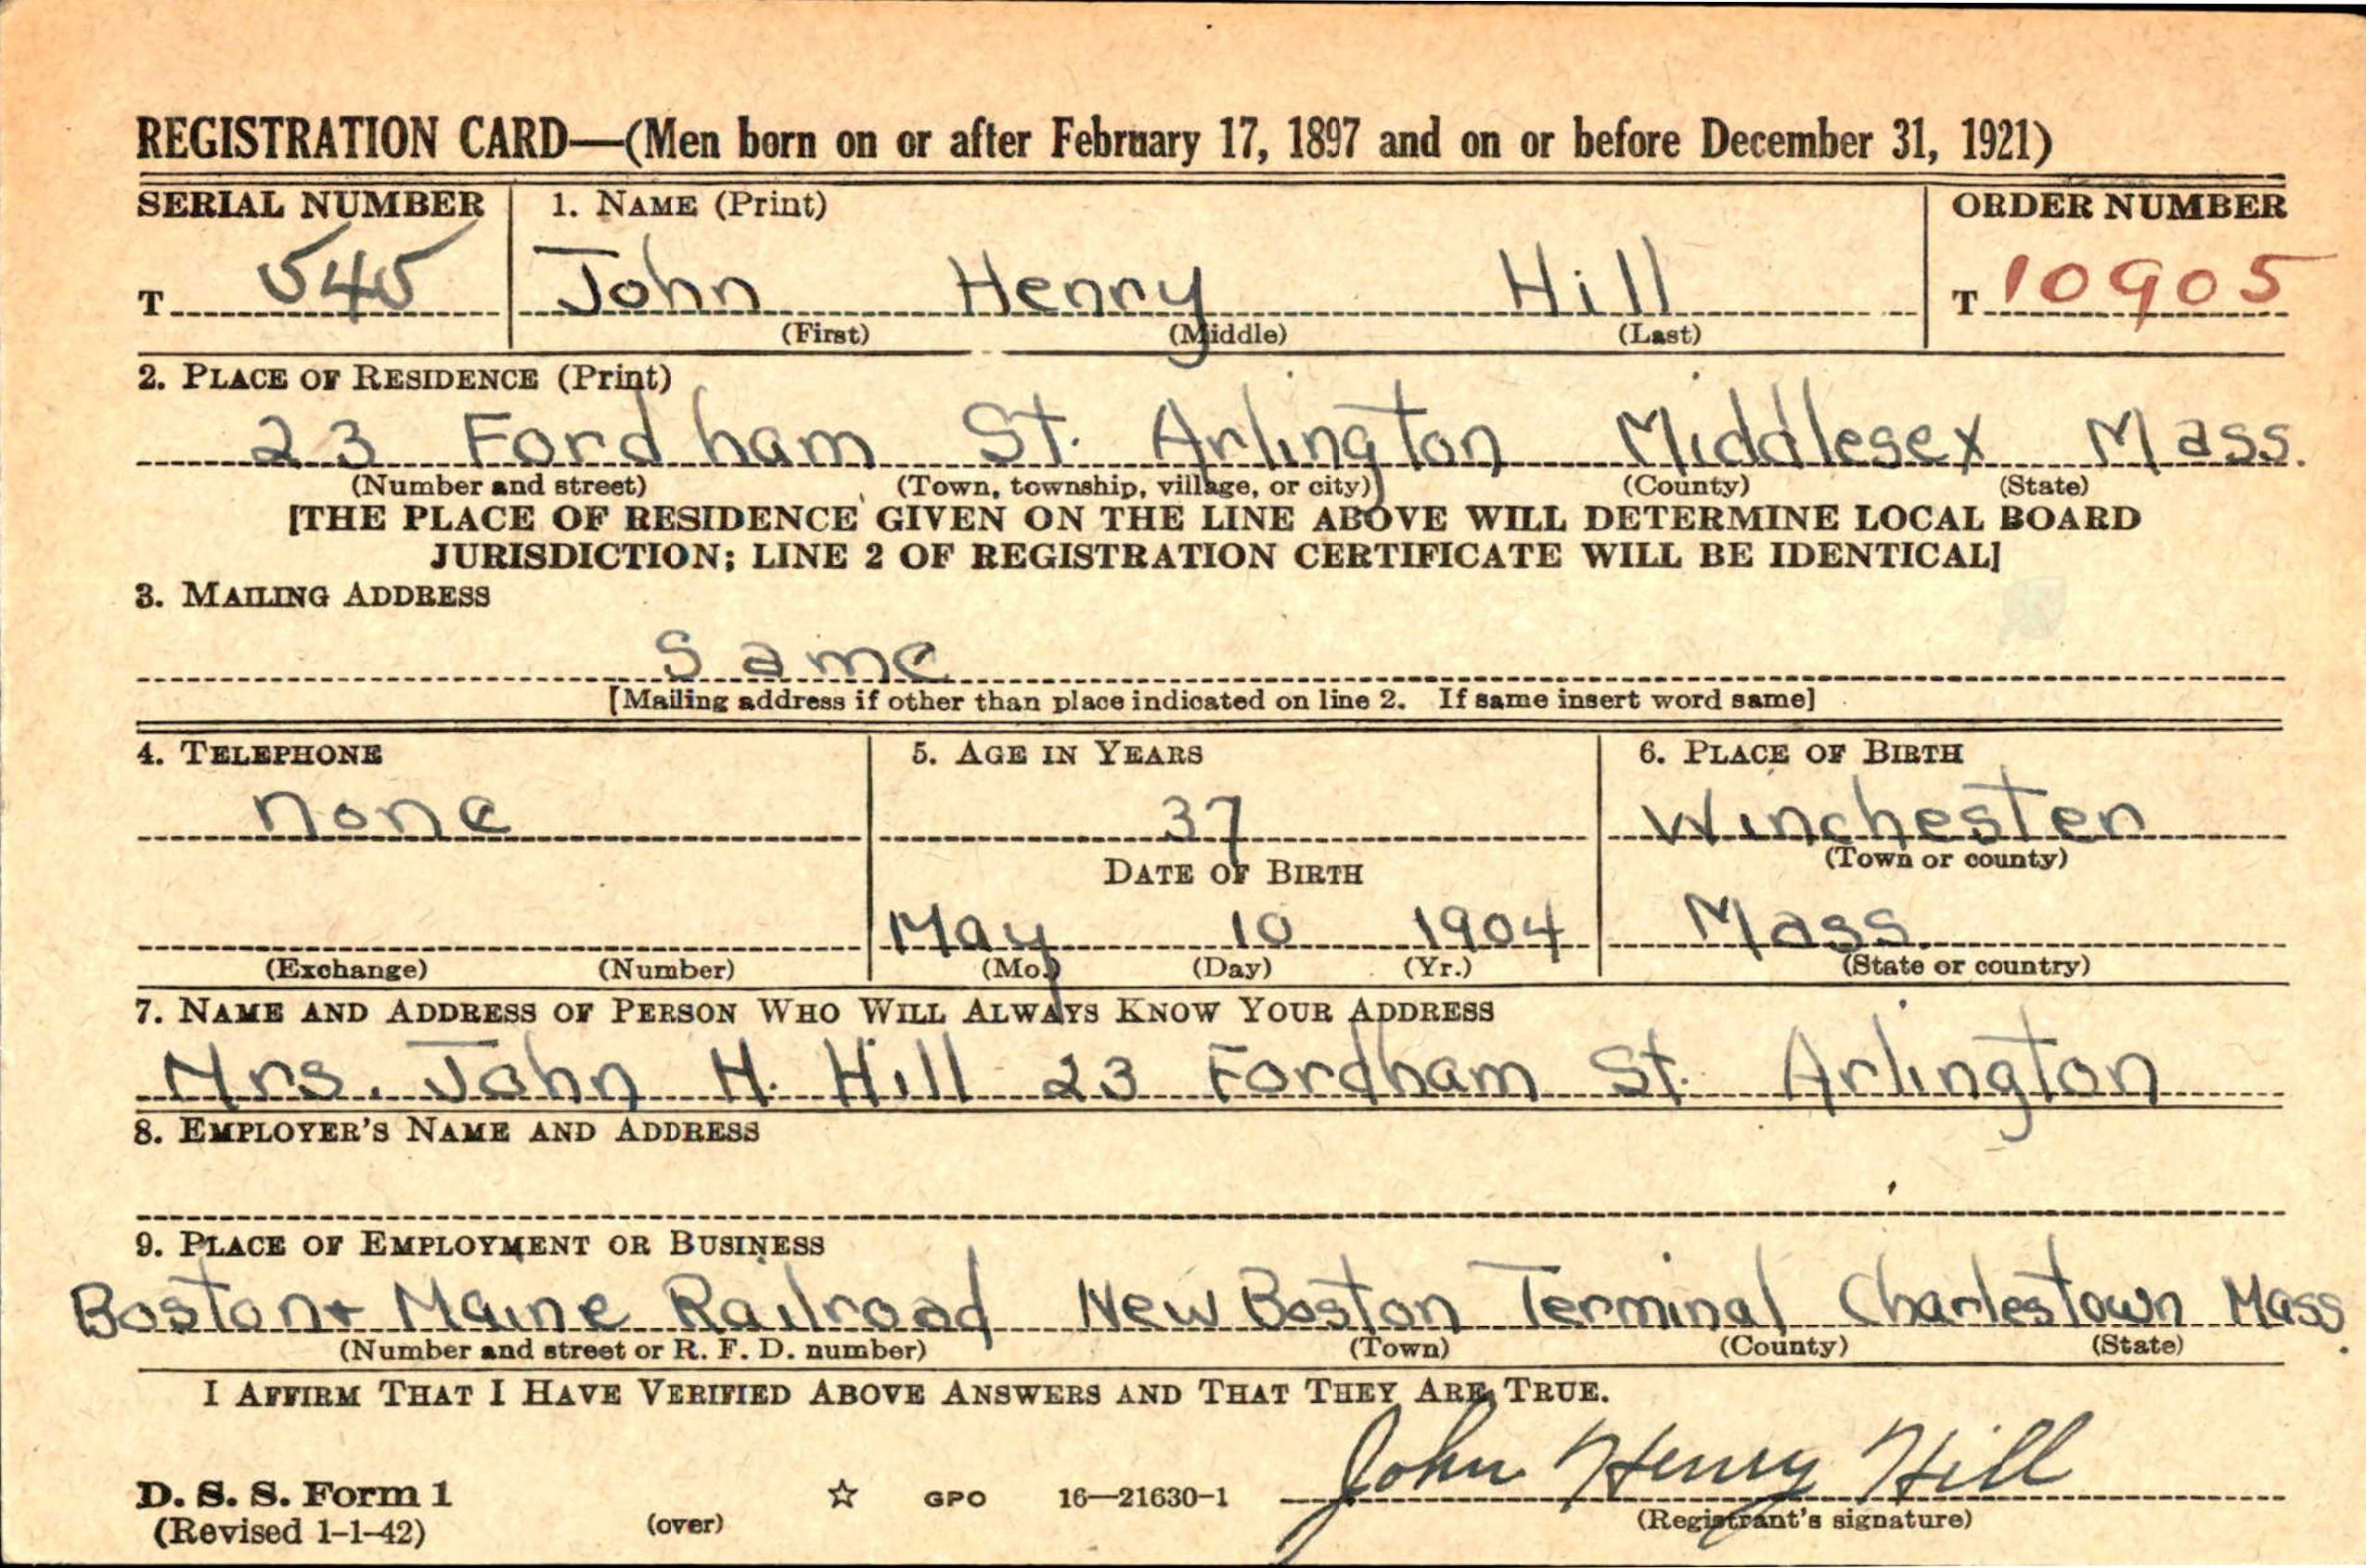 REGISTRATION CARD—(Men born on or after February 17, 1897 and on or before December 31, 1921)
SERIAL NUMBER 1. NAME (Print) ORDER NUMBER
T 545 John Henry Hill T 10905
(First) (Middle) (Last)
2. PLACE OF RESIDENCE (Print)
23 Fordham St. Arlington Middlesex Mass.
(Number and street) (Town, township, village, or city) (County) (State)
[THE PLACE OF RESIDENCE GIVEN ON THE LINE ABOVE WILL DETERMINE LOCAL BOARD
JURISDICTION; LINE 2 OF REGISTRATION CERTIFICATE WILL BE IDENTICAL]
3. MAILING ADDRESS
Same
[Mailing address if other than place indicated on line 2. If same insert word same]
4. TELEPHONE 5. AGE IN YEARS 6. PLACE OF BIRTH
none 37 Winchester
DATE OF BIRTH (Town or county)
May 10 1904 Mass.
(Exchange) (Number) (Mo.) (Day) (Yr.) (State or country)
7. NAME AND ADDRESS OF PERSON WHO WILL ALWAYS KNOW YOUR ADDRESS
Mrs. John H. Hill 23 Fordham St. Arlington
8. EMPLOYER'S NAME AND ADDRESS
9. PLACE OF EMPLOYMENT OR BUSINESS
Boston + Maine Railroad New Boston Terminal Charlestown Mass.
(Number and street or R. F. D. number) (Town) (County) (State)
I AFFIRM THAT I HAVE VERIFIED ABOVE ANSWERS AND THAT THEY ARE TRUE.
John Henry Hill
D. S. S. Form 1 ☆ GPO 16—21630-1
(Revised 1-1-42) (over) (Registrant's signature)